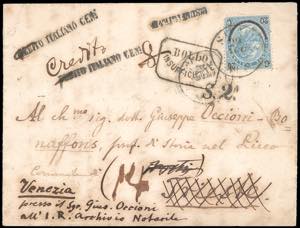 CREDITO ITALIANO CENT.
CREDITO ITALIANO CENT.
Credito 8
BOLLO
INSUFFICIENTE
S. 2ª
Al ch.mo sig. dott. Giuseppe Occioni-Bo
naffons, prof. di Storia nel Liceo
Comunale di
Venezia
14
presso il Sgr. Gius. Occioni
all' I. R. Archivio Notarile